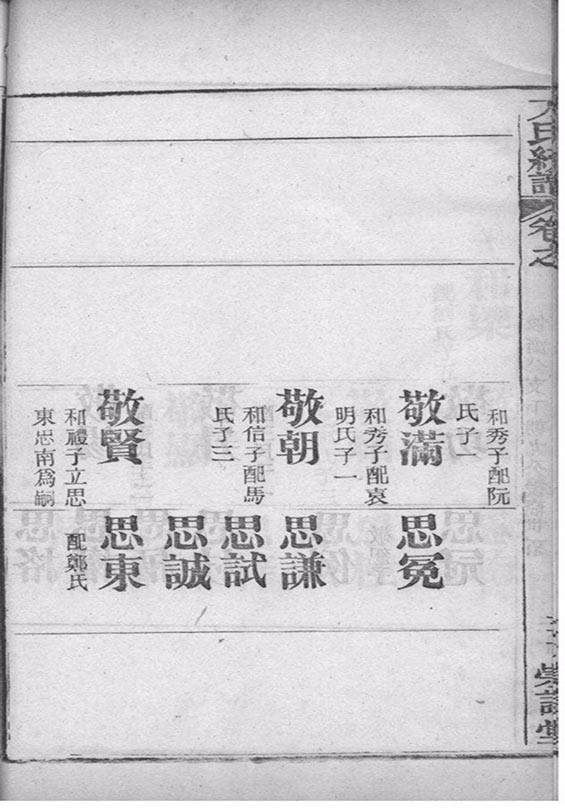 氏統譜
卷之
和秀子配阮
氏子一
敬滿
和秀子配袁
明氏子一
敬朝
和信子配馬
氏子三
敬賢
和禮子立思
東忠南爲嗣
思冕
思謙
思試
思誠
思東
配鄭氏
譜堂